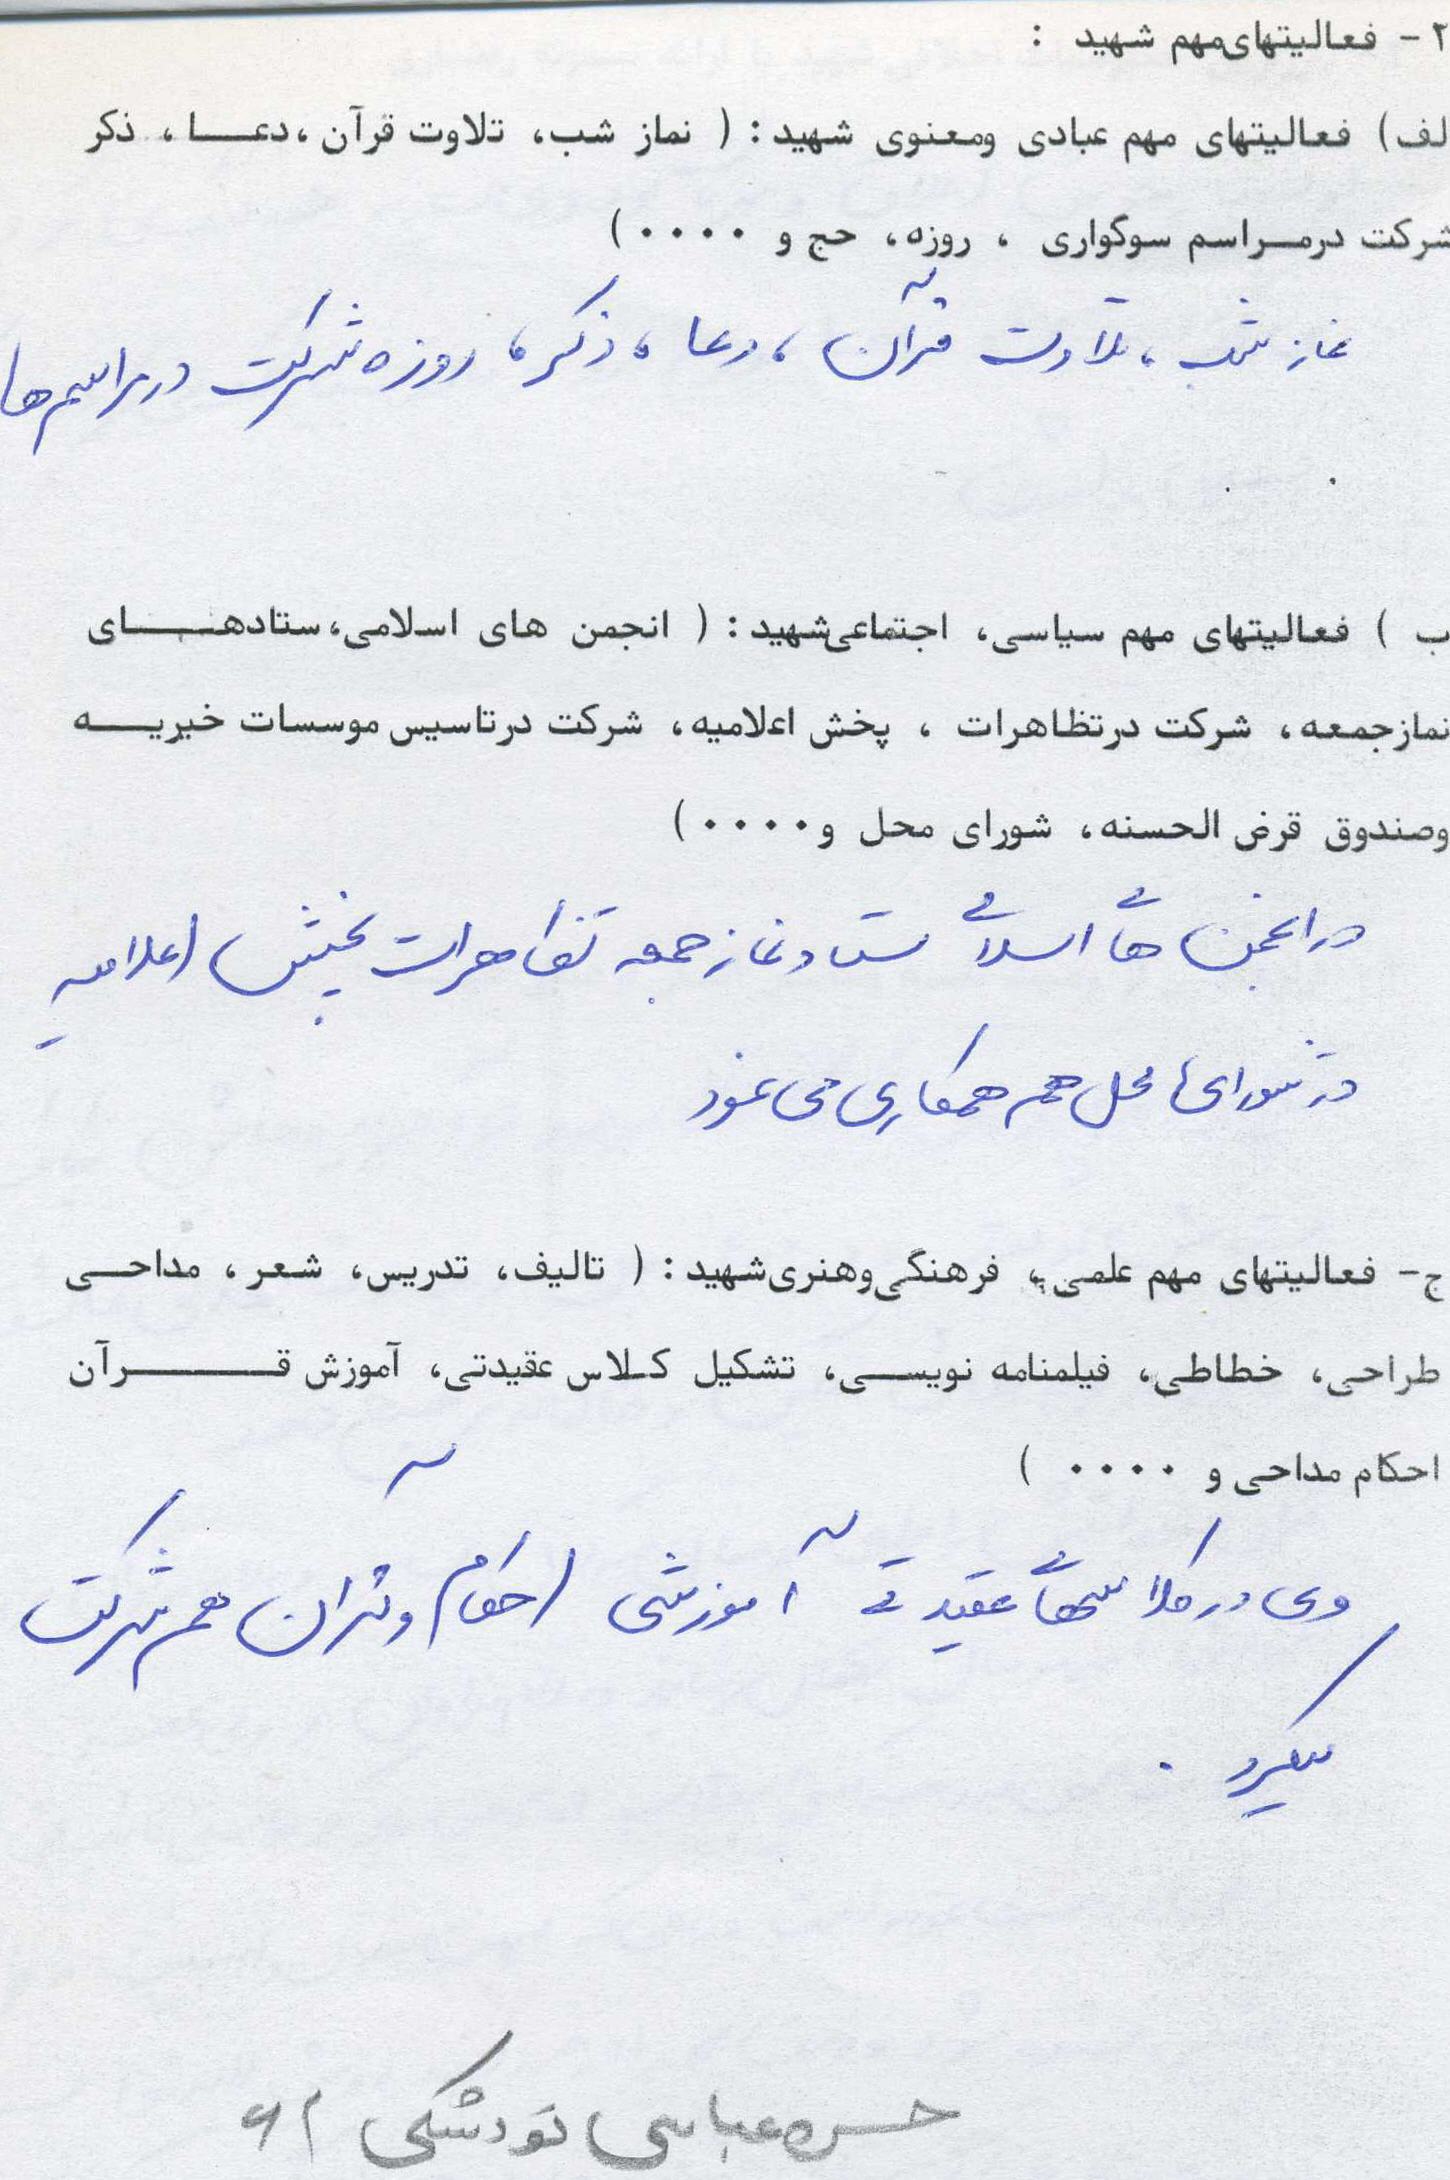 ۲ - فعالیتهای مهم شهید :
لف) فعالیتهای مهم عبادی ومعنوی شهید : ( نماز شب، تلاوت قرآن ،دعا ، ذکر
شرکت درمراسم سوگواری ، روزه، حج و ۰۰۰۰)
نماز شب ، تلاوت قرآن ، دعا ، ذکر ، روزه شرکت در مراسم ها
ب ) فعالیتهای مهم سیاسی، اجتماعی شهید : ( انجمن های اسلامی، ستادهای
نمازجمعه ، شرکت درتظاهرات ، پخش اعلامیه ، شرکت درتاسیس موسسات خیریه
وصندوق قرض الحسنه ، شورای محل و۰۰۰۰ )
در انجمن های اسلامی ستاد نماز جمعه تظاهرات پخش اعلامیه
در شورای محل هم همکاری می نمود
ج- فعالیتهای مهم علمی ، فرهنگی وهنری شهید : ( تالیف، تدریس، شعر ، مداحی
طراحی، خطاطی، فیلمنامه نویسی، تشکیل کلاس عقیدتی، آموزش قرآن
احکام مداحی و ۰۰۰۰ )
وی در کلاسهای عقیدتی آموزشی احکام و قرآن هم شرکت
میکرد .
عباسی تودشکی ۶۱